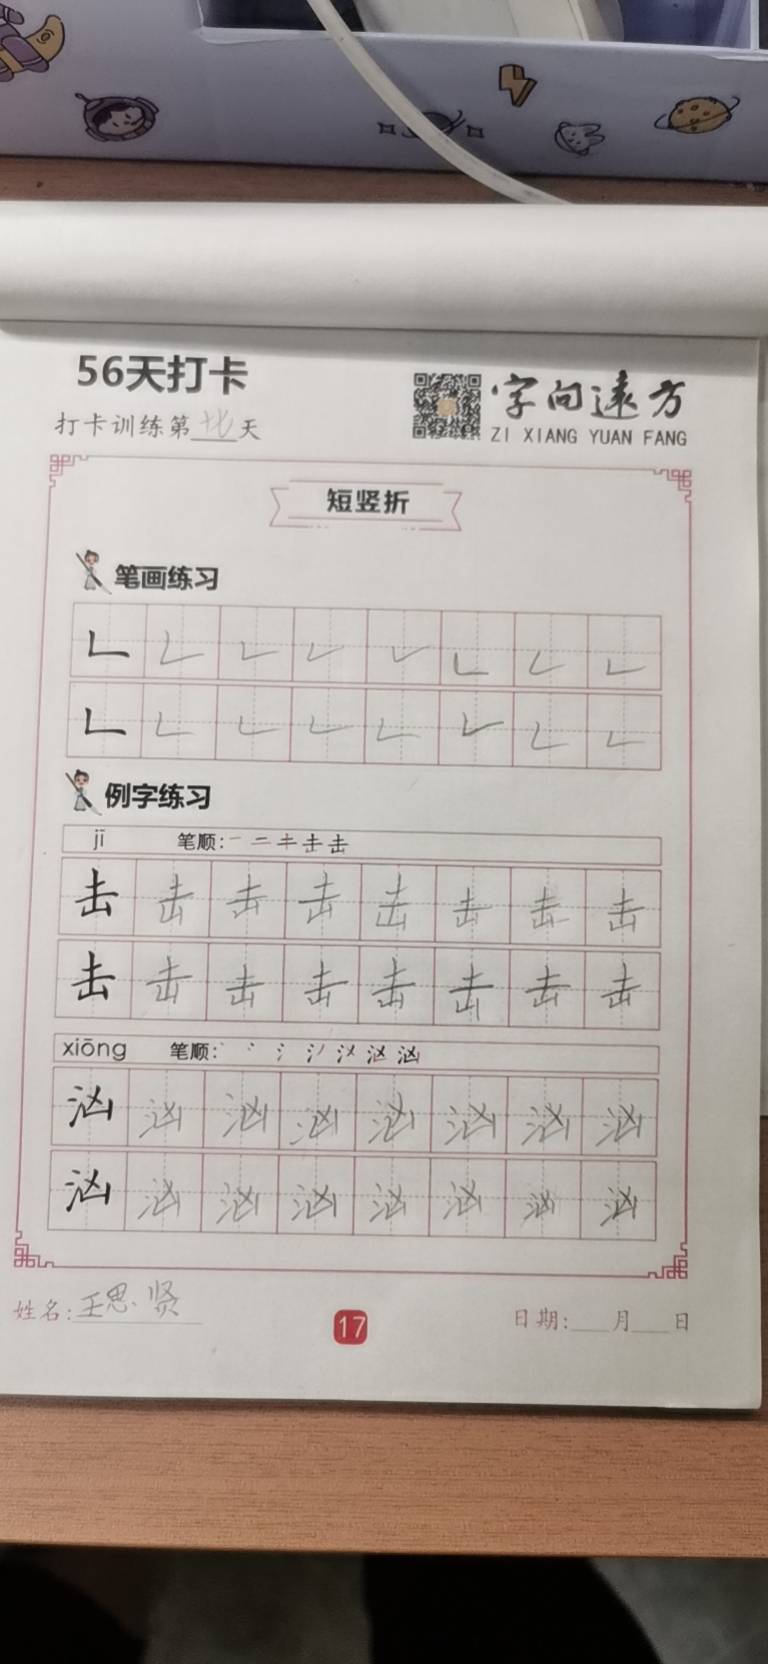 56天打卡
打卡训练第 天
字向远方
ZI XIANG YUAN FANG
短竖折
笔画练习
例字练习
jī 笔顺:
击 击 击 击 击 击 击 击
击 击 击 击 击 击 击 击
xiōng 笔顺:
汹 汹 汹 汹 汹 汹 汹 汹
汹 汹 汹 汹 汹 汹 汹 汹
姓名:王思贤
17
日期: 月 日